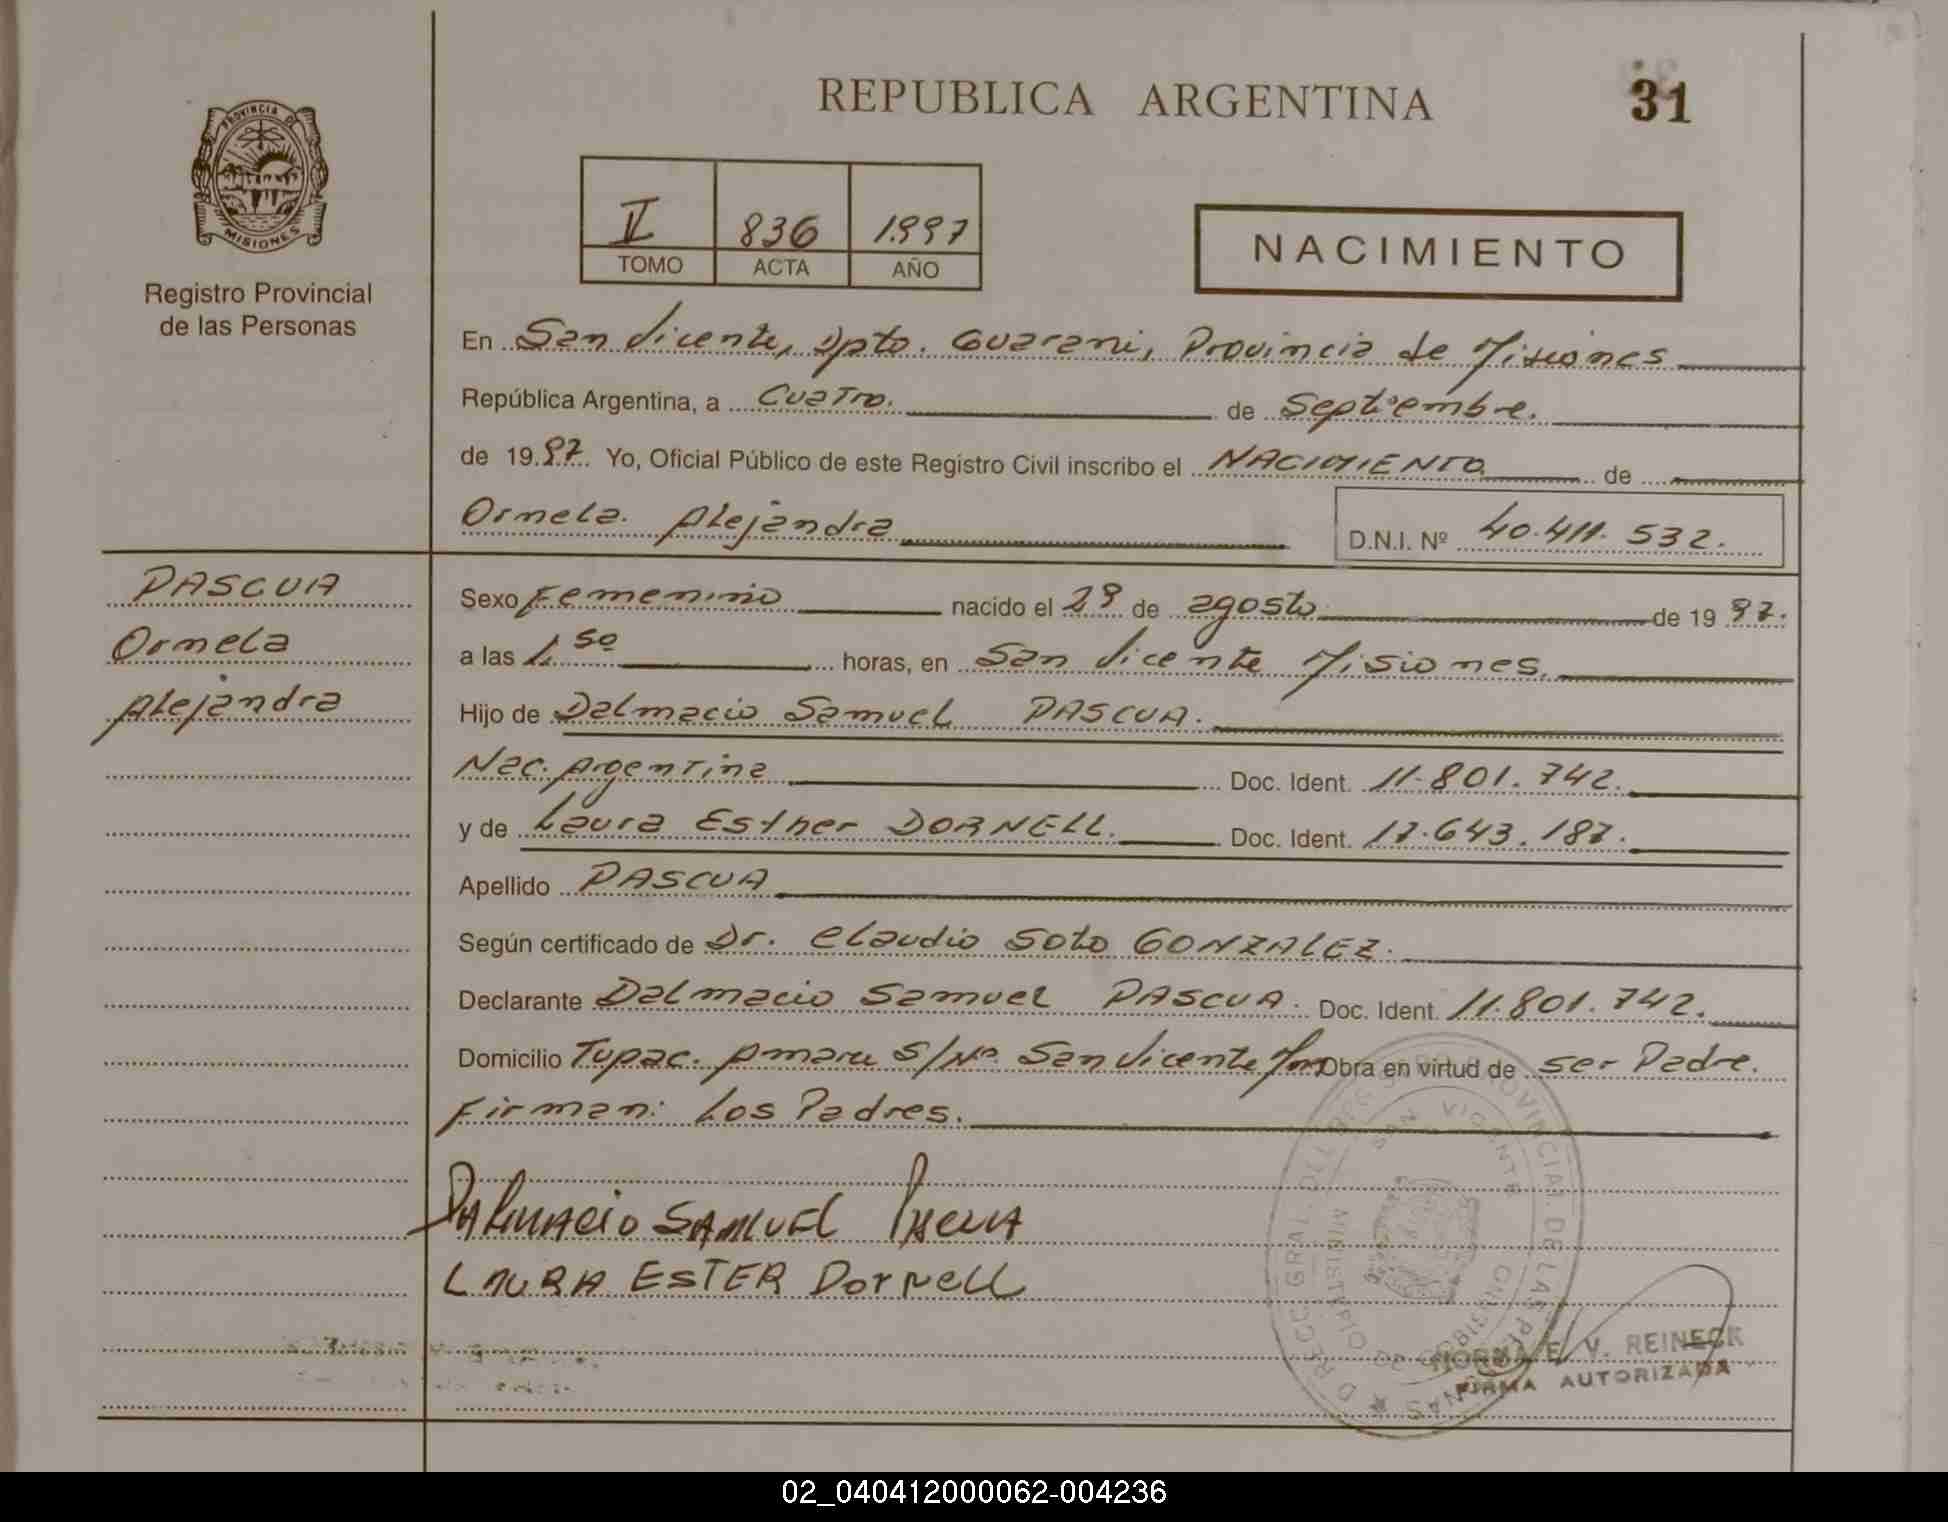 REPUBLICA ARGENTINA
31
PROVINCIA DE
MISIONES
Registro Provincial
de las Personas
V 836 1.997
TOMO ACTA AÑO
NACIMIENTO
En San Vicente, Dpto. Guarani, Provincia de Misiones
República Argentina, a Cuatro. de Septiembre.
de 19 97. Yo, Oficial Público de este Registro Civil inscribo el NACIMIENTO de
Ornela. Alejandra
D.N.I. Nº 40.411.532.
PASCUA
Ornela
Alejandra
Sexo Femenino nacido el 29 de agosto de 19 97.
a las 1.50 horas, en San Vicente Misiones.
Hijo de Dalmacio Samuel PASCUA.
Nac. Argentina Doc. Ident. 11.801.742.
y de Laura Esther DORNELL. Doc. Ident. 17.643.187.
Apellido PASCUA
Según certificado de Dr. Claudio Soto GONZALEZ.
Declarante Dalmacio Samuel PASCUA. Doc. Ident. 11.801.742.
Domicilio Tupac. Amaru S/Nº. San Vicente Obra en virtud de ser Padre.
Firman: Los Padres.
DALMACIO SAMUEL PASCUA
LAURA ESTER Dornell
SAN VICENTE
NORMA E. V. REINECK
FIRMA AUTORIZADA
02_040412000062-004236